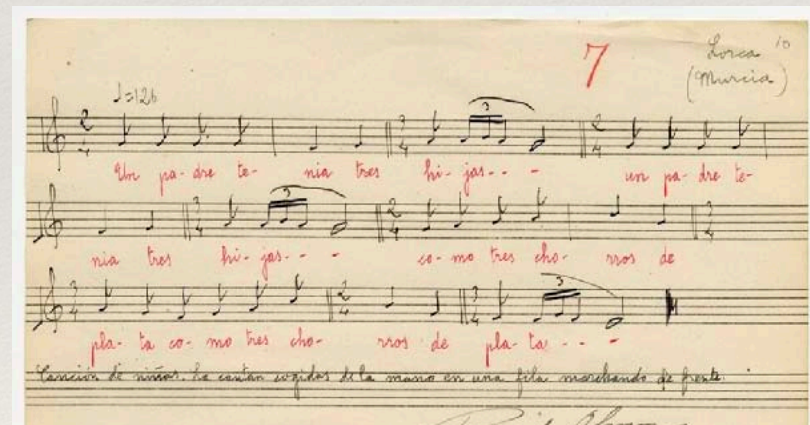 7
Lorca 10
(Murcia)
♩=126
Un pa- dre te- nia tres hi- jas- - - un pa- dre te-
nia tres hi- jas- - - co- mo tres cho- rros de
pla- ta co- mo tres cho- rros de pla- ta- - -
Canción de niñas. La cantan cogidas de la mano en una fila marchando de frente.